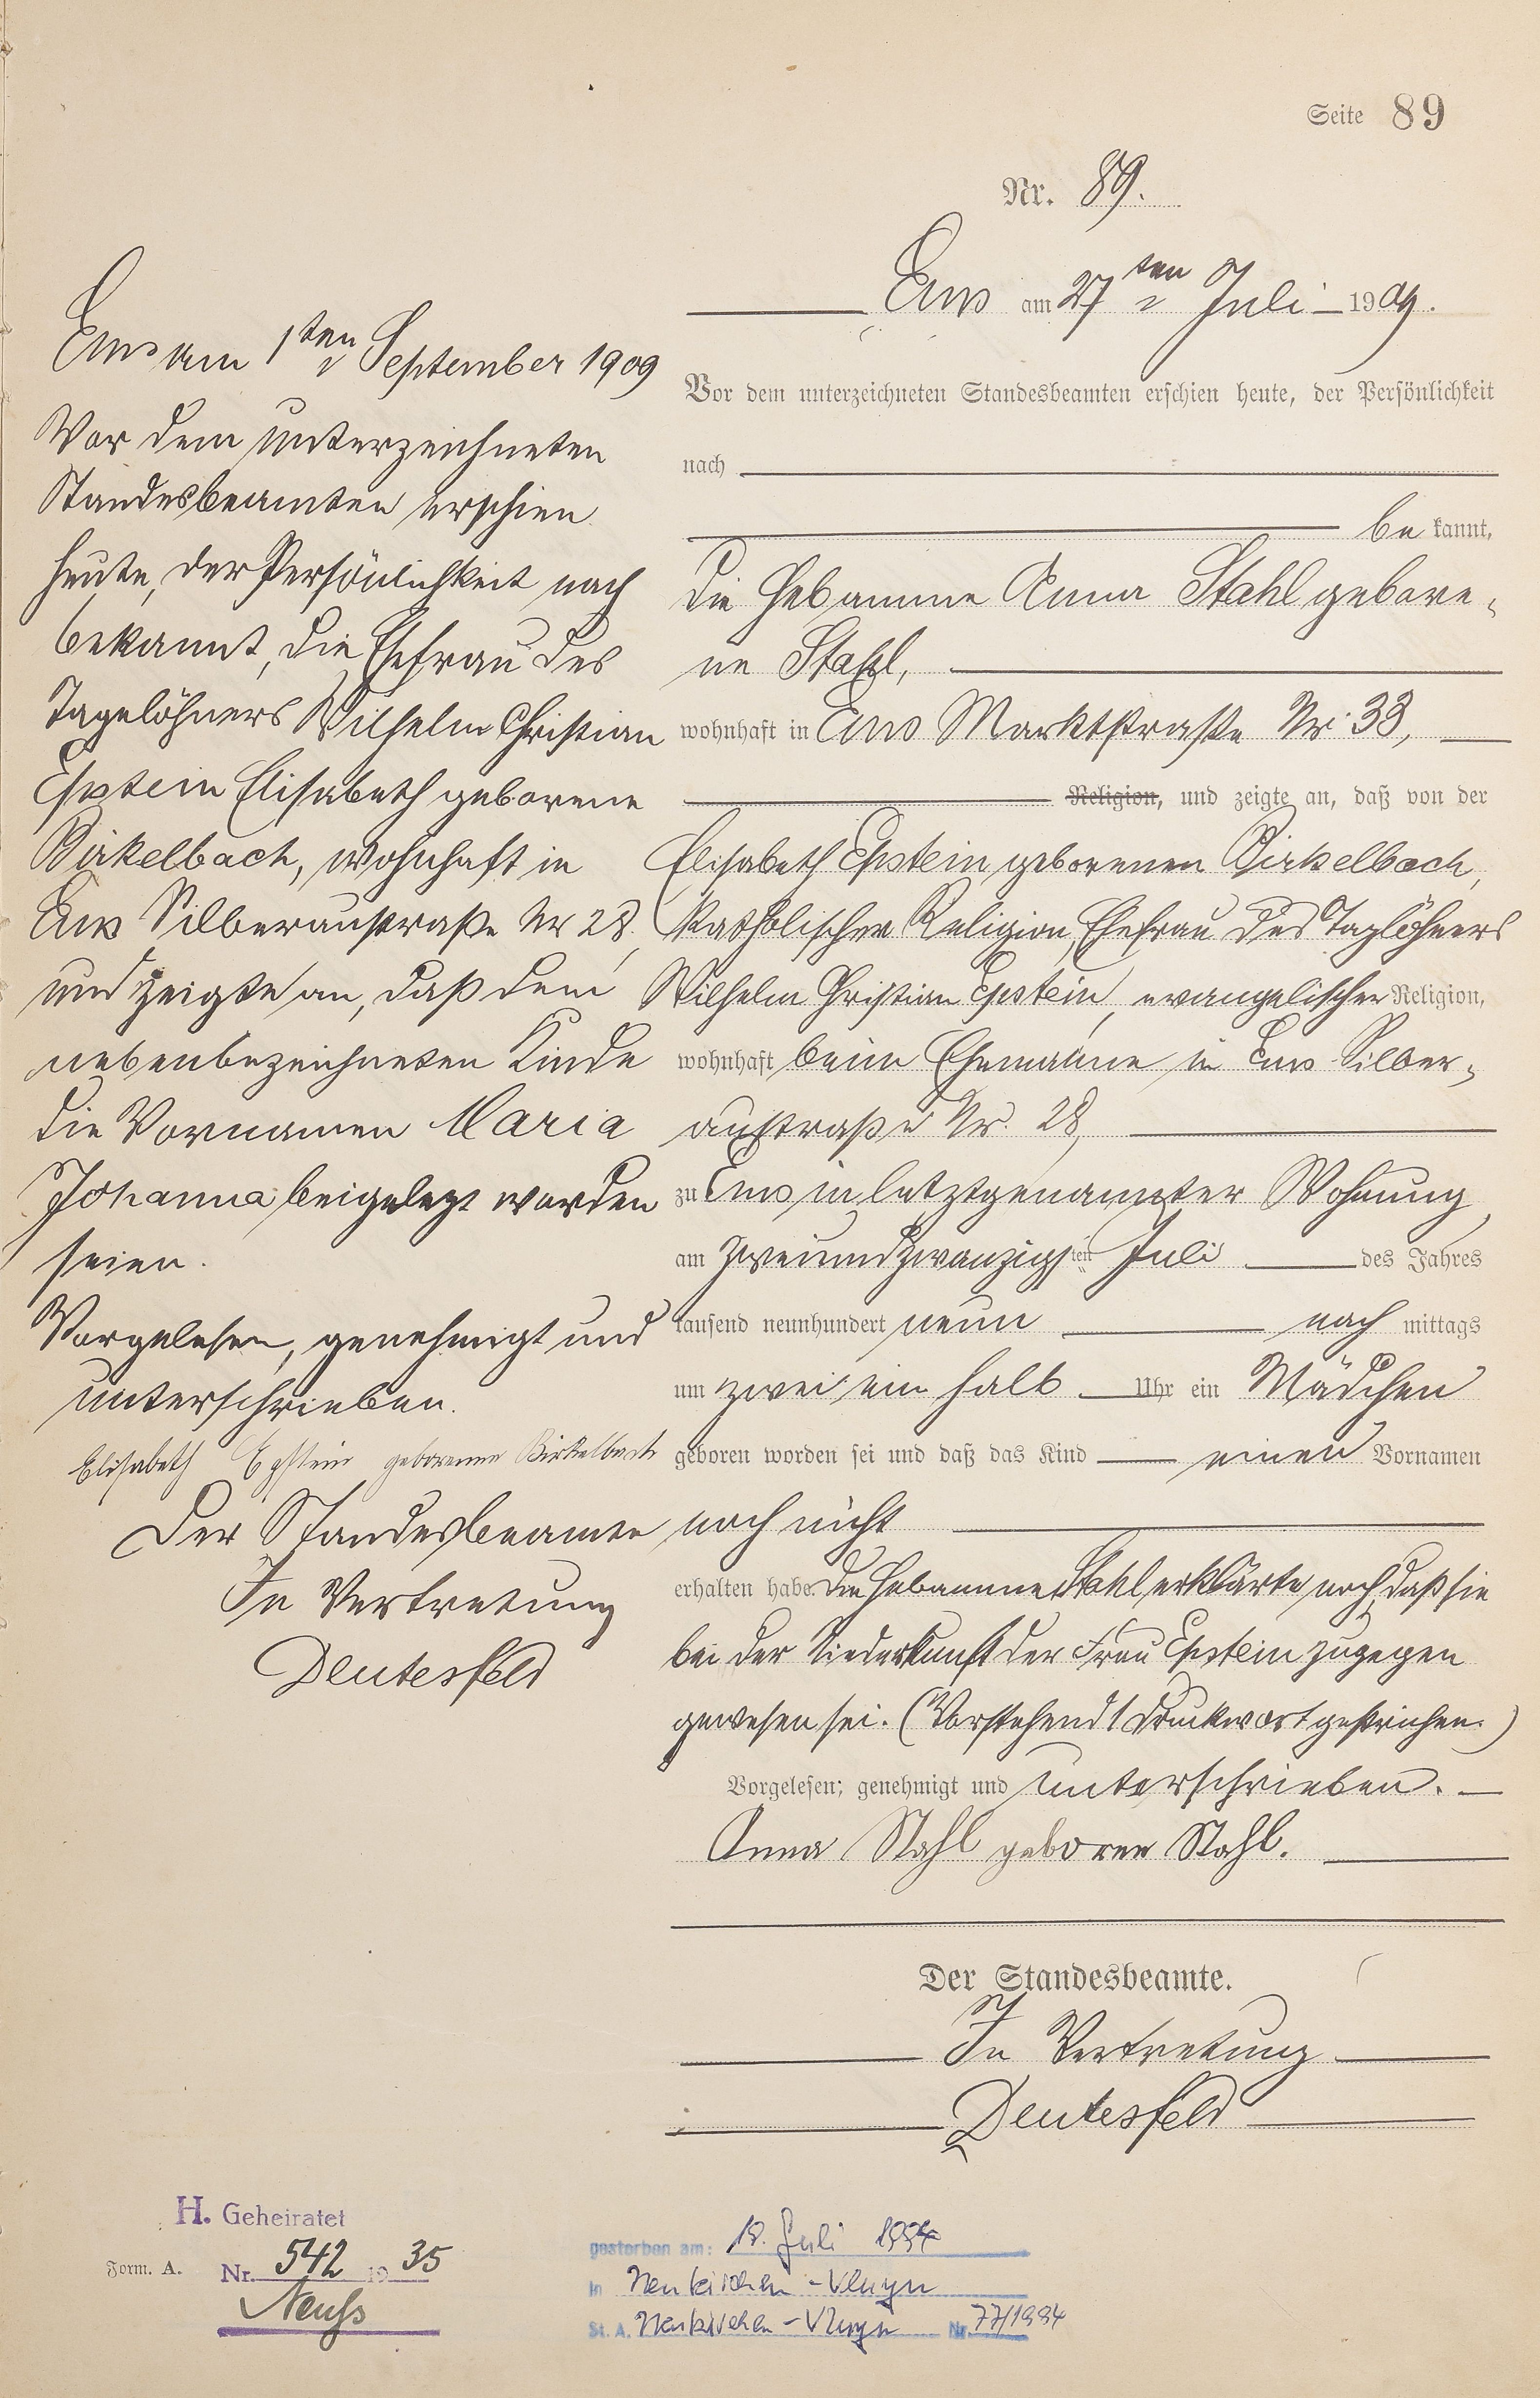 Seite 89
Nr. 89.
Ems am 27ten Juli 1909.
Vor dem unterzeichneten Standesbeamten erschien heute, der Persönlichkeit
nach
be kannt,
die Hebamme Anna Stahl gebore-
ne Stahl,
wohnhaft in Ems Marktstraße Nr. 33,
Religion, und zeigte an, daß von der
Elisabeth Epstein geborenen Birkelbach,
katholischer Religion, Ehefrau des Taglöhners
Wilhelm Christian Epstein, evangelischer Religion,
wohnhaft beim Ehemanne in Ems Silber-
austraße Nr. 28,
zu Ems in letztgenannter Wohnung,
am zweiundzwanzigsten Juli des Jahres
tausend neunhundert neun nach mittags
um zwei ein halb Uhr ein Mädchen
geboren worden sei und daß das Kind einen Vornamen
noch nicht
erhalten habe. Die Hebamme Stahl erklärte noch, daß sie
bei der Niederkunft der Frau Epstein zugegen
gewesen sei. (Vorstehend 1 Druckwort gestrichen.)
Vorgelesen, genehmigt und unterschrieben.
Anna Stahl geborene Stahl.
Der Standesbeamte.
In Vertretung
Deutesfeld
Ems am 1ten September 1909
Vor dem unterzeichneten
Standesbeamten erschien
heute, der Persönlichkeit nach
bekannt, die Ehefrau des
Tagelöhners Wilhelm Christian
Epstein Elisabeth geborene
Birkelbach, wohnhaft in
Ems Silberaustraße Nr 28,
und zeigte an, daß dem
nebenbezeichneten Kinde
die Vornamen Maria
Johanna beigelegt worden
seien.
Vorgelesen, genehmigt und
unterschrieben.
Elisabeth Epstein geborene Birkelbach
Der Standesbeamte
In Vertretung
Deutesfeld
H. Geheiratet
Form. A. Nr. 542 1935
Neuss
gestorben am: 18. Juli 1994
in Neukirchen-Vluyn
St. A. Neukirchen-Vluyn Nr. 77/1994